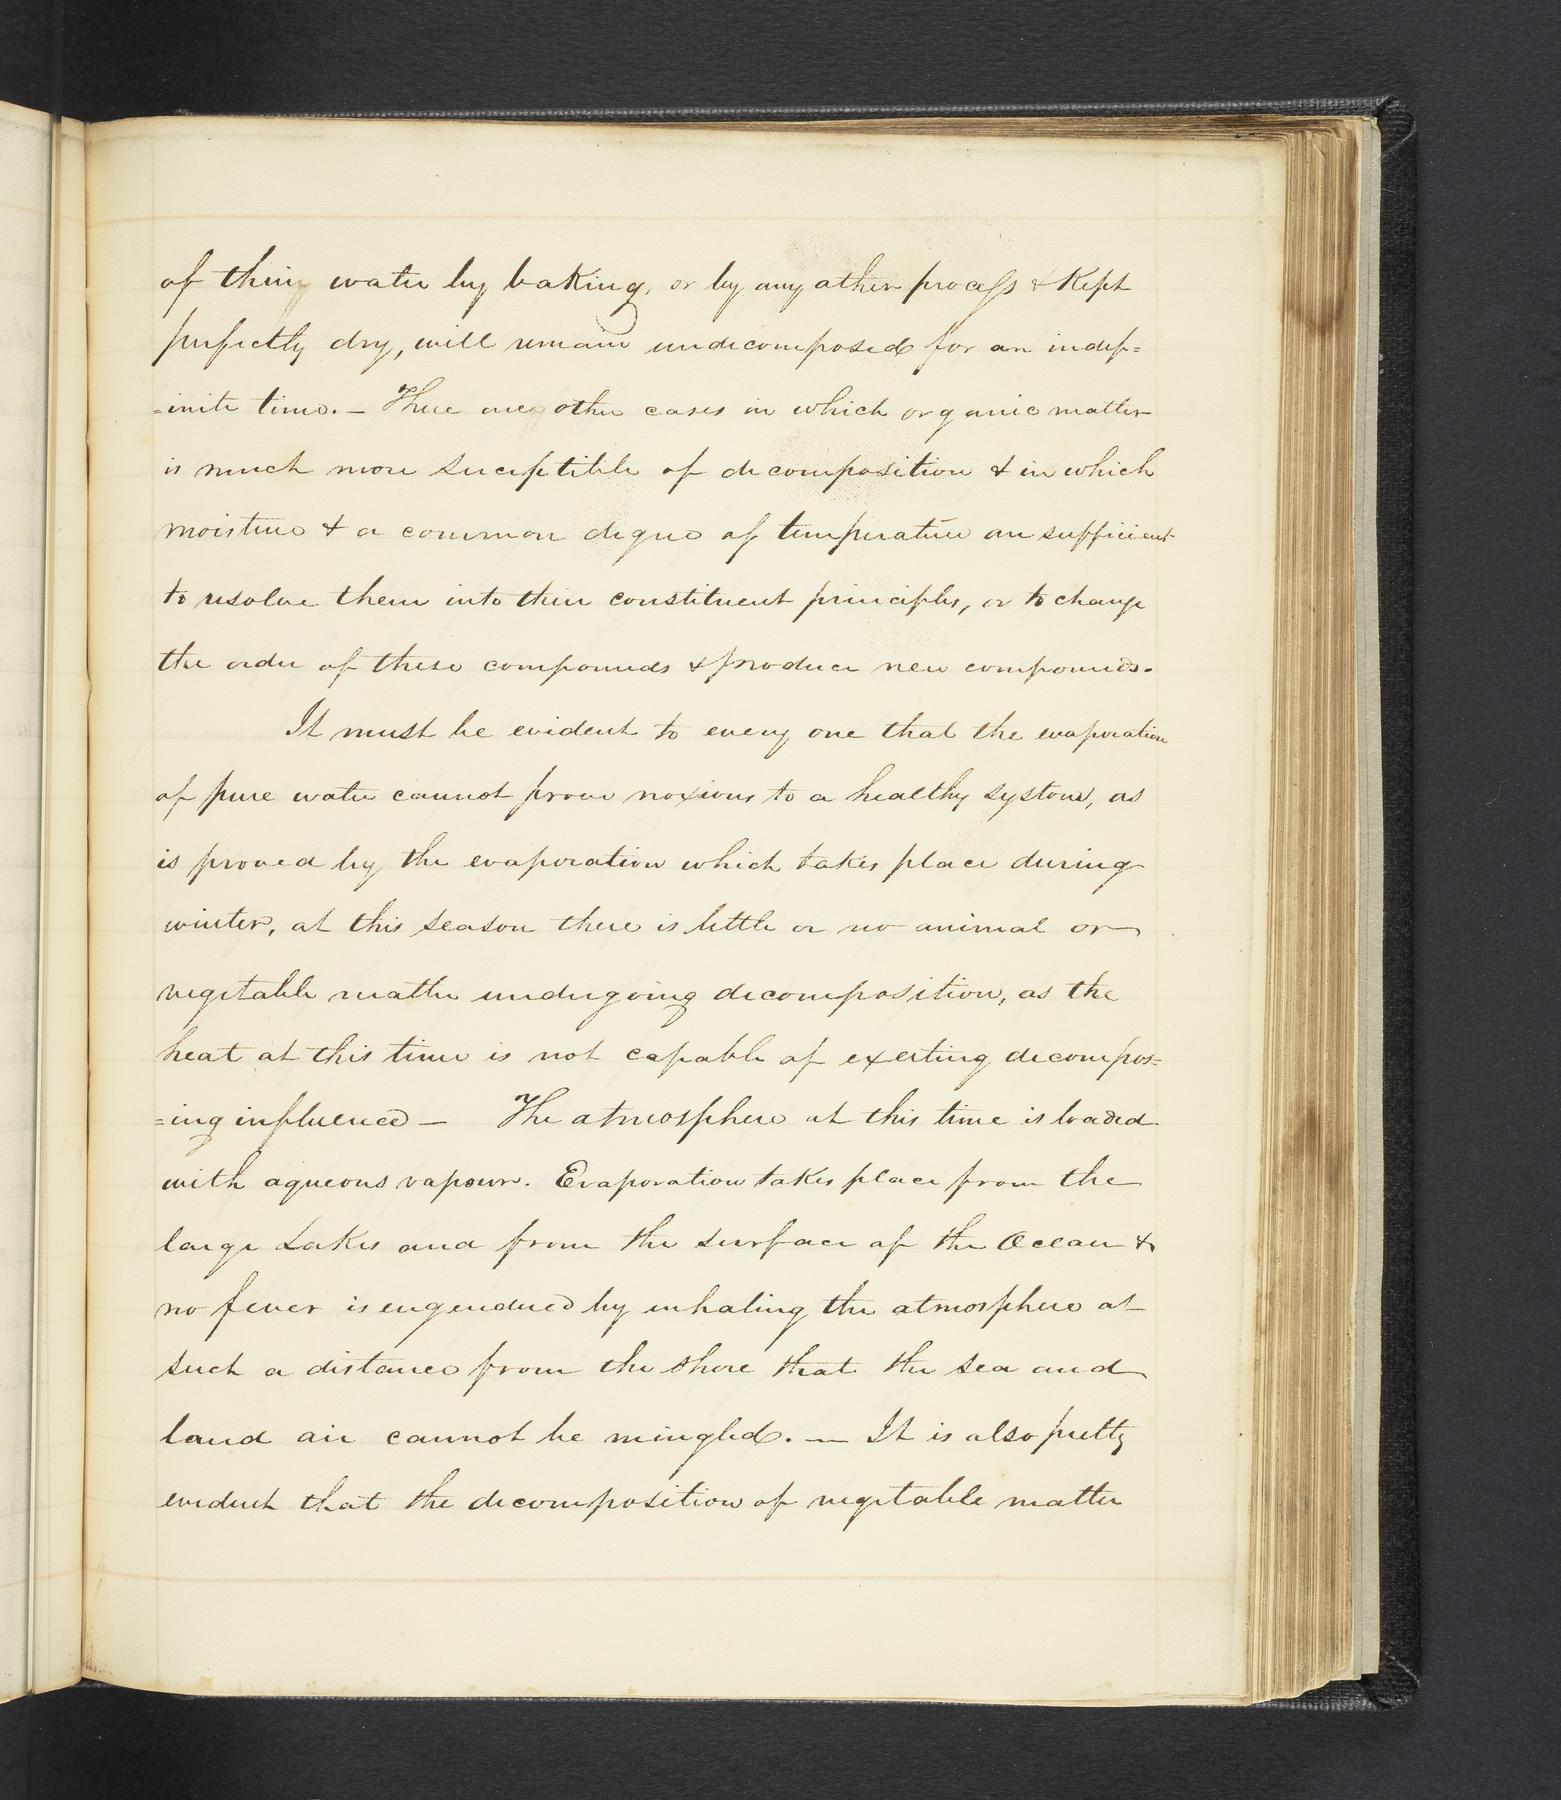 of their water by baking, or by any other process & kept
perfectly dry, will remain undecomposed for an indef=
=inite time. — There are other cases in which organic matter
is much more suceptible of decomposition & in which
moisture & a common degree of temperature are sufficient
to resolve them into their constituent principles, or to change
the order of these compounds & produce new compounds.
It must be evident to every one that the evaporation
of pure water cannot prove noxious to a healthy system, as
is proved by the evaporation which takes place during
winter, at this season there is little or no animal or
vegetable matter undergoing decomposition, as the
heat at this time is not capable of exerting decompos=
=ing influence — The atmosphere at this time is loaded
with aqueous vapour. Evaporation takes place from the
large Lakes and from the surface of the Ocean &
no fever is engendered by inhaling the atmosphere at
such a distance from the shore that the sea and
land air cannot be mingled. — It is also pretty
evident that the decomposition of vegetable matter